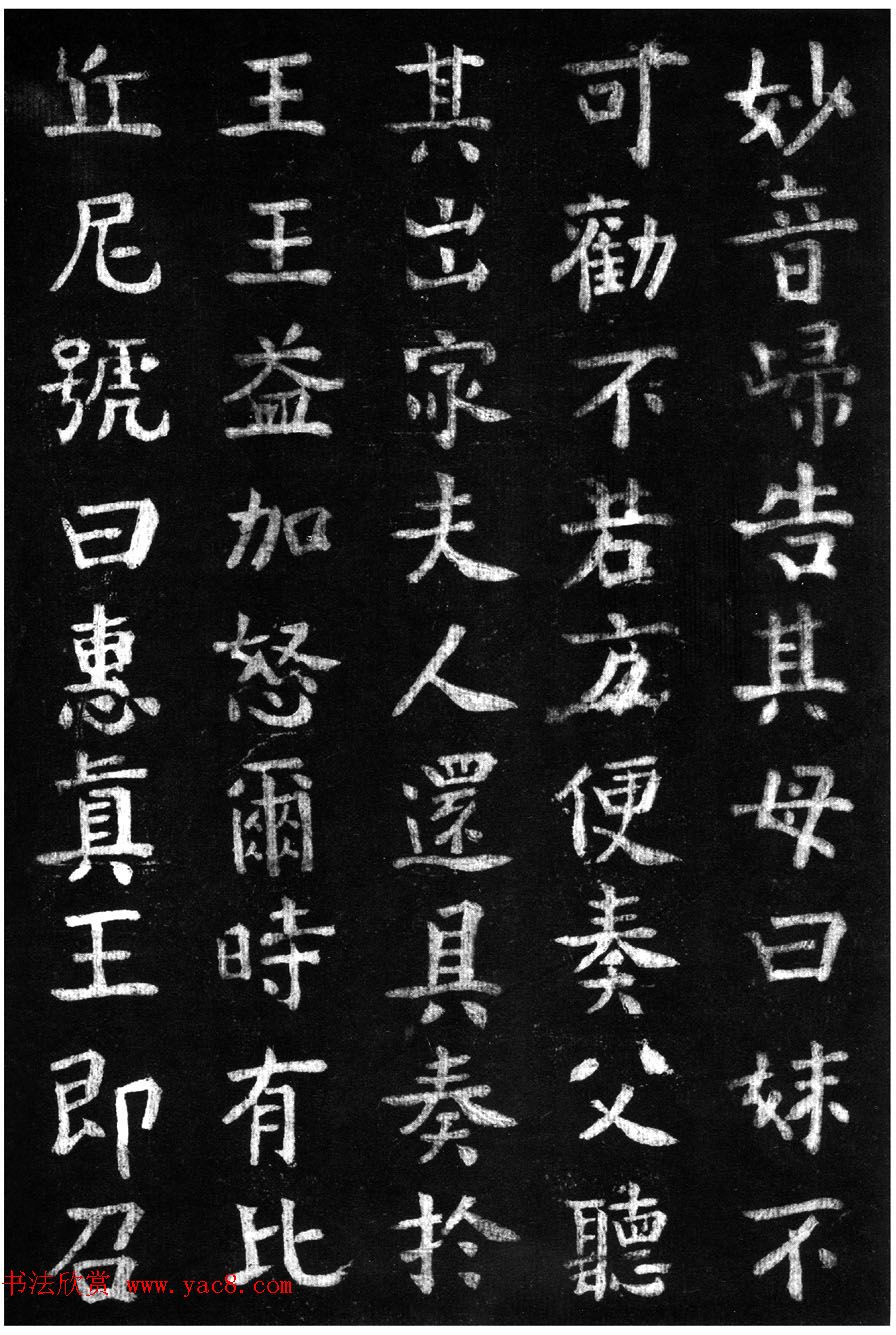 妙音歸告其母曰妹不
可勸不若方便奏父聽
其出家夫人還具奏於
王王益加怒爾時有比
丘尼號曰惠眞王即召
书法欣赏 www.yac8.com